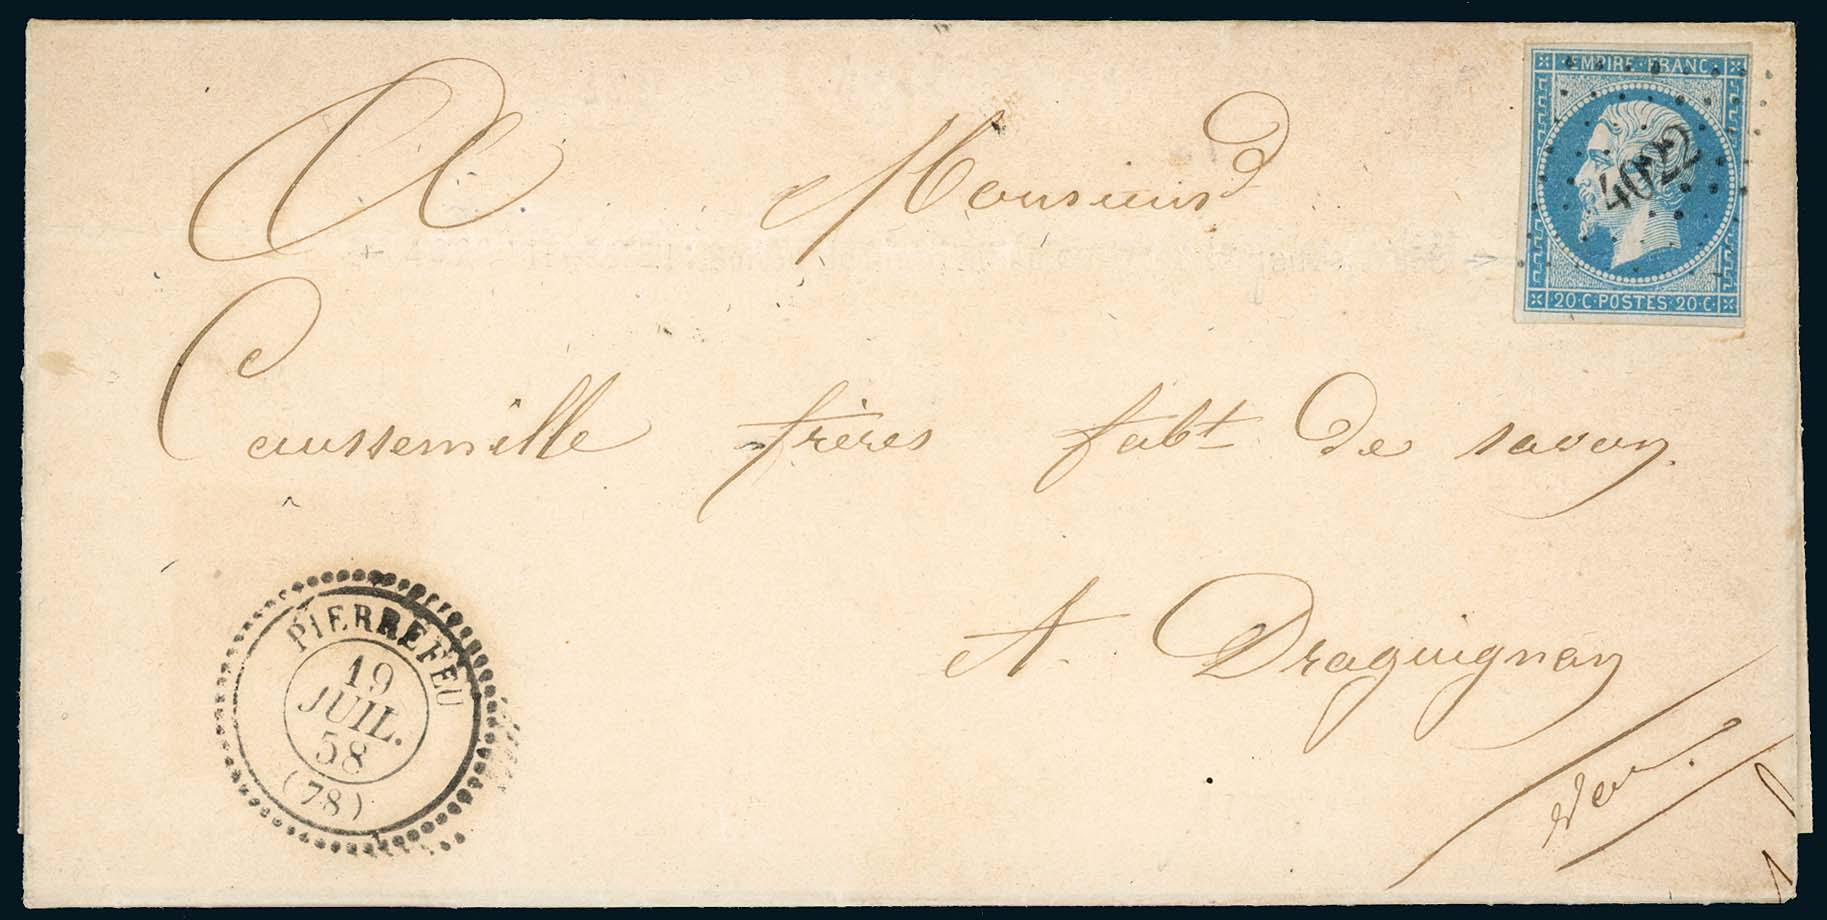 EMPIRE · FRANC ·
4022
20 · C · POSTES · 20 · C ·
A Monsieurs
Caussemille frères fabt de savon
A Draguignan
Var.
PIERREFEU
19
JUIL.
58
(78)